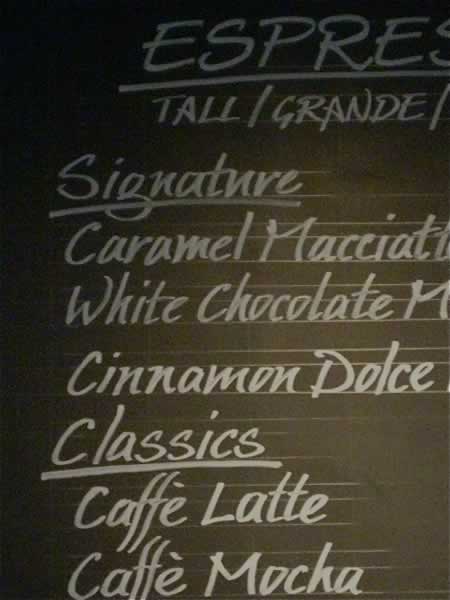 ESPRES
TALL / GRANDE /
Signature
Caramel Macciatt
White Chocolate M
Cinnamon Dolce
Classics
Caffè Latte
Caffè Mocha